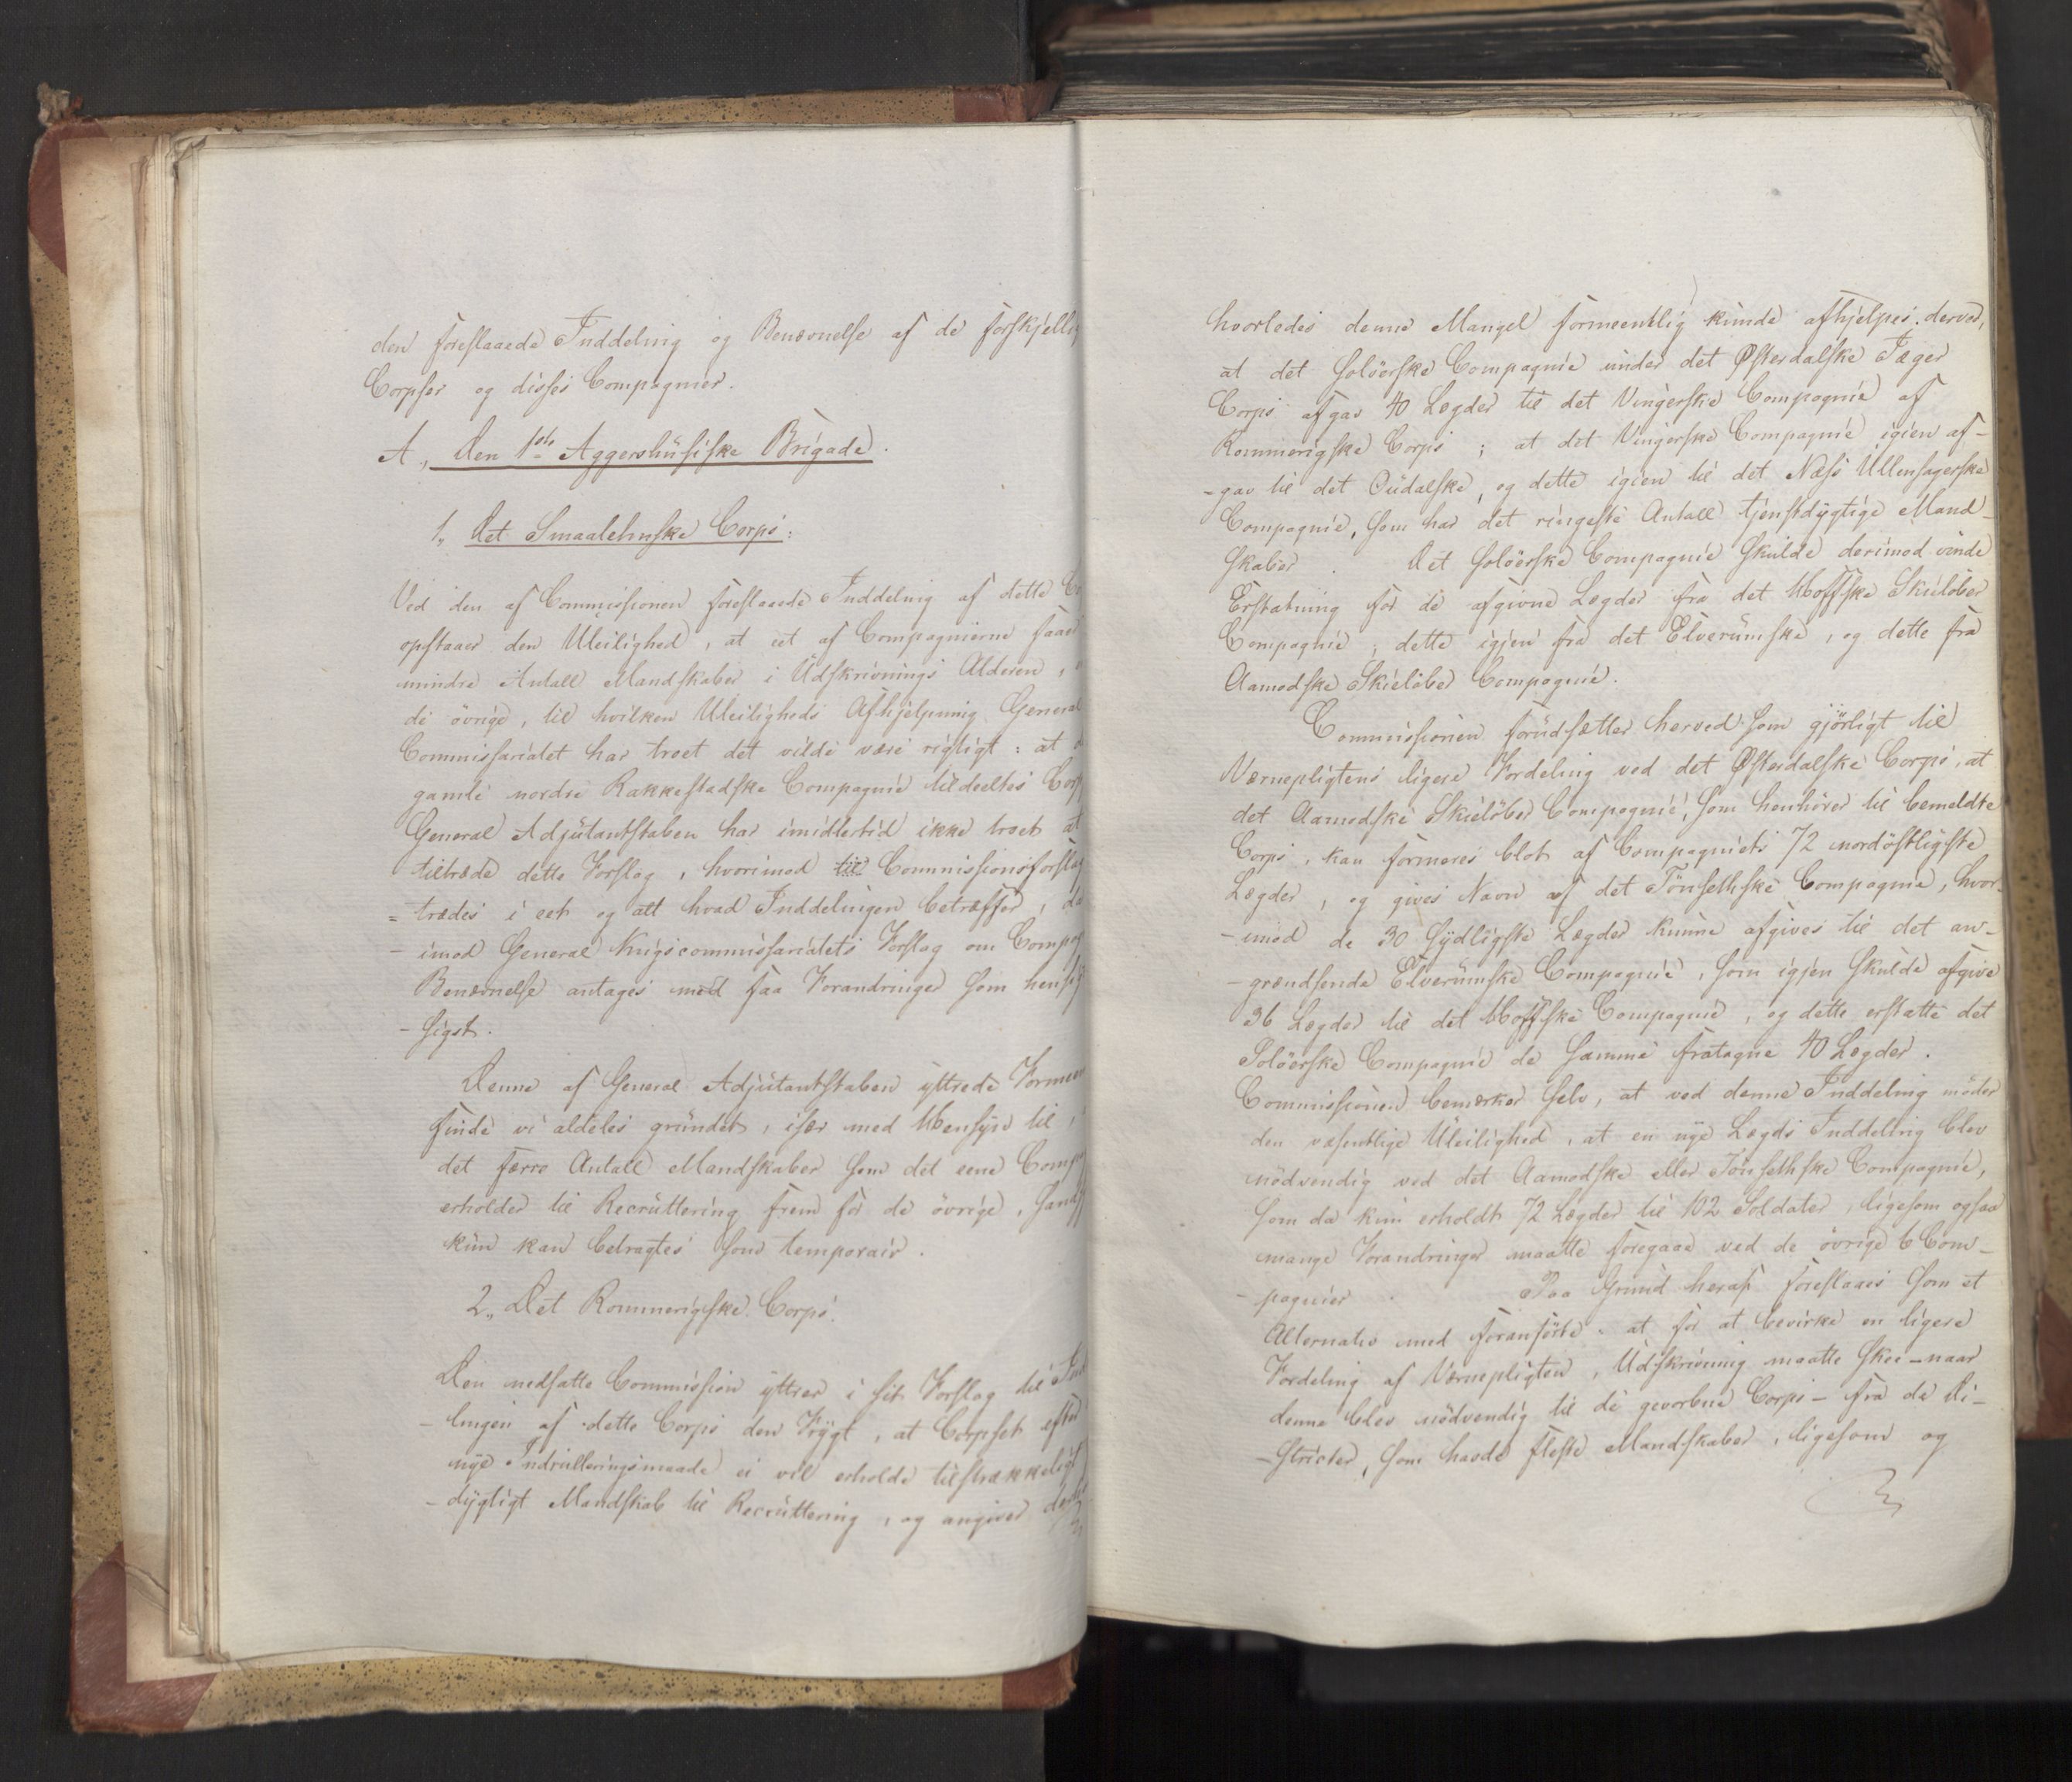 den foreslaaede Inddeling og Benævnelse af de forskjellig
Corpser og disses Compagnier.
A, Den 1ste Aggershusiske Brigade.
1., Det Smaalehnske Corps:
Ved den af Commissionen foreslaaede Inddeling af dette Co
opstaaer den Uleilighed, at eet af Compagnierne faaer
mindre Antall Mandskaber i Udskrivnings Alderen,
de övrige, til hvilken Uleiligheds Afhjelpning General
Commissariatet har troet det vilde være rigtigt: at
gamle nordre Rakkestadske Compagnie tildeeltes Corp
General Adjutantstaben har imidlertid ikke troet at
tiltræde dette Forslag, hvorimod til Commissionsforslag
=trædes i eet og alt hvad Inddelingen betræffer, de
-imod General Krigscommissariatets Forslag om Compag
Benævnelse antages med faa Forandringer som hensig
-sigst.
Denne af General Adjutantstaben yttrede Formeen
finde vi aldeles grundet, især med Hensyn til,
det færre Antall Mandskaber som det eene Comp
erholder til Recruttering frem for de övrige, sands
kun kan betragtes som temporair.
2., Det Rommerigske Corps.
Den nedsatte Commission yttrer i sit Forslag til Ind
-lingen af dette Corps den Frygt, at Corpset efter
nye Indrulleringsmaade ei vil erholde tilstrækkeligt
-dygtigt Mandskab til Recruttering, og angiver
hvorledes denne Mangel formeentlig kunde afhjelpes derved,
at det Solöerske Compagnie under det Østerdalske Jæger
Corps afgav 40 Lægder til det Vingerske Compagnie af
Rommerigske Corps; at det Vingerske Compagnie igien af-
-gav til det Oudalske, og dette igien til det Næs Ullensagerske
Compagnie, som har det ringeste Antall tjenstdygtige Mand-
skaber. Det Solöerske Compagnie skulde derimod vinde
Erstatning for de afgivne Lægder fra det Hoffske Skielöber
Compagnie, dette igjen fra det Elverumske, og dette fra
Aamodske Skielöber Compagnie.
Commissionen forudsætter herved som gjörligt til
Værnepligtens ligere Fordeling ved det Østerdalske Corps, at
det Aamodske Skielöber Compagnie, som henhörer til bemeldte
Corps, kan formeres blot af Compagniets 72 nordöstligste
Lægder, og gives Navn af det Tönsethske Compagnie, hvor-
-imod de 30 sydligste Lægder kunne afgives til det an-
-grændsende Elverumske Compagnie, som igjen skulde afgive
36 Lægder til det Hoffske Compagnie, og dette erstatte det
Solöerske Compagnie de samme fratagne 40 Lægder.
Commissionen bemærker selv, at ved denne Inddeling möder
den væsentlige Uleilighed, at en nye Lægds Inddeling blev
nödvendig ved det Aamodske eller Tönsethske Compagnie,
som da kun erholdt 72 Lægder til 102 Soldater, ligesom ogsaa
mange Forandringer maatte foregaae ved de övrige 6 Com-
-pagnier. Paa Grund heraf foreslaaes som et
Alternativ med foranförte: at for at bevirke en ligere
Fordeling af Værnepligten, Udskrivning maatte skee - naar
denne blev nödvendig til de gevorbne Corps - fra de Di-
-stricter, som havde fleste Mandskaber, ligesom og